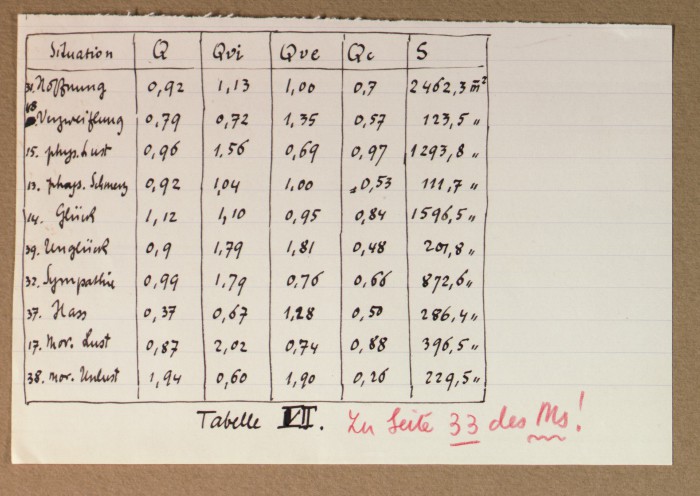 Situation Q Qvi Qve Qc S
31. Hoffnung 0,92 1,13 1,00 0,7 2462,3 m²
18. Verzweiflung 0,79 0,72 1,35 0,57 123,5 "
15. phys. Lust 0,96 1,56 0,69 0,97 1293,8 "
13. phys. Schmerz 0,92 1,04 1,00 0,53 111,7 "
14. Glück 1,12 1,10 0,95 0,84 1596,5 "
39. Unglück 0,9 1,79 1,81 0,48 201,8 "
32. Sympathie 0,99 1,79 0,76 0,66 872,6 "
37. Hass 0,37 0,67 1,28 0,50 286,4 "
17. Mor. Lust 0,87 2,02 0,74 0,88 396,5 "
38. mor. Unlust 1,94 0,60 1,90 0,26 229,5 "
Tabelle VII. Zu Seite 33 des Ms!